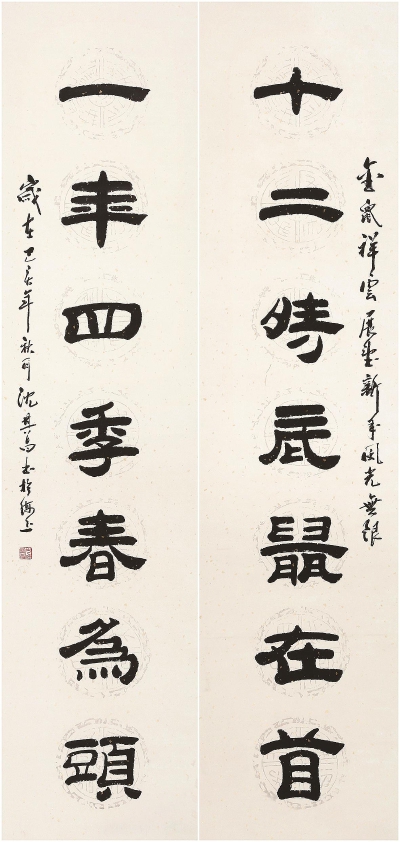 金鼠祥雲展望新年風光無限
十二時辰鼠在首
一年四季春為頭
歲在己亥年秋月沈書於海上